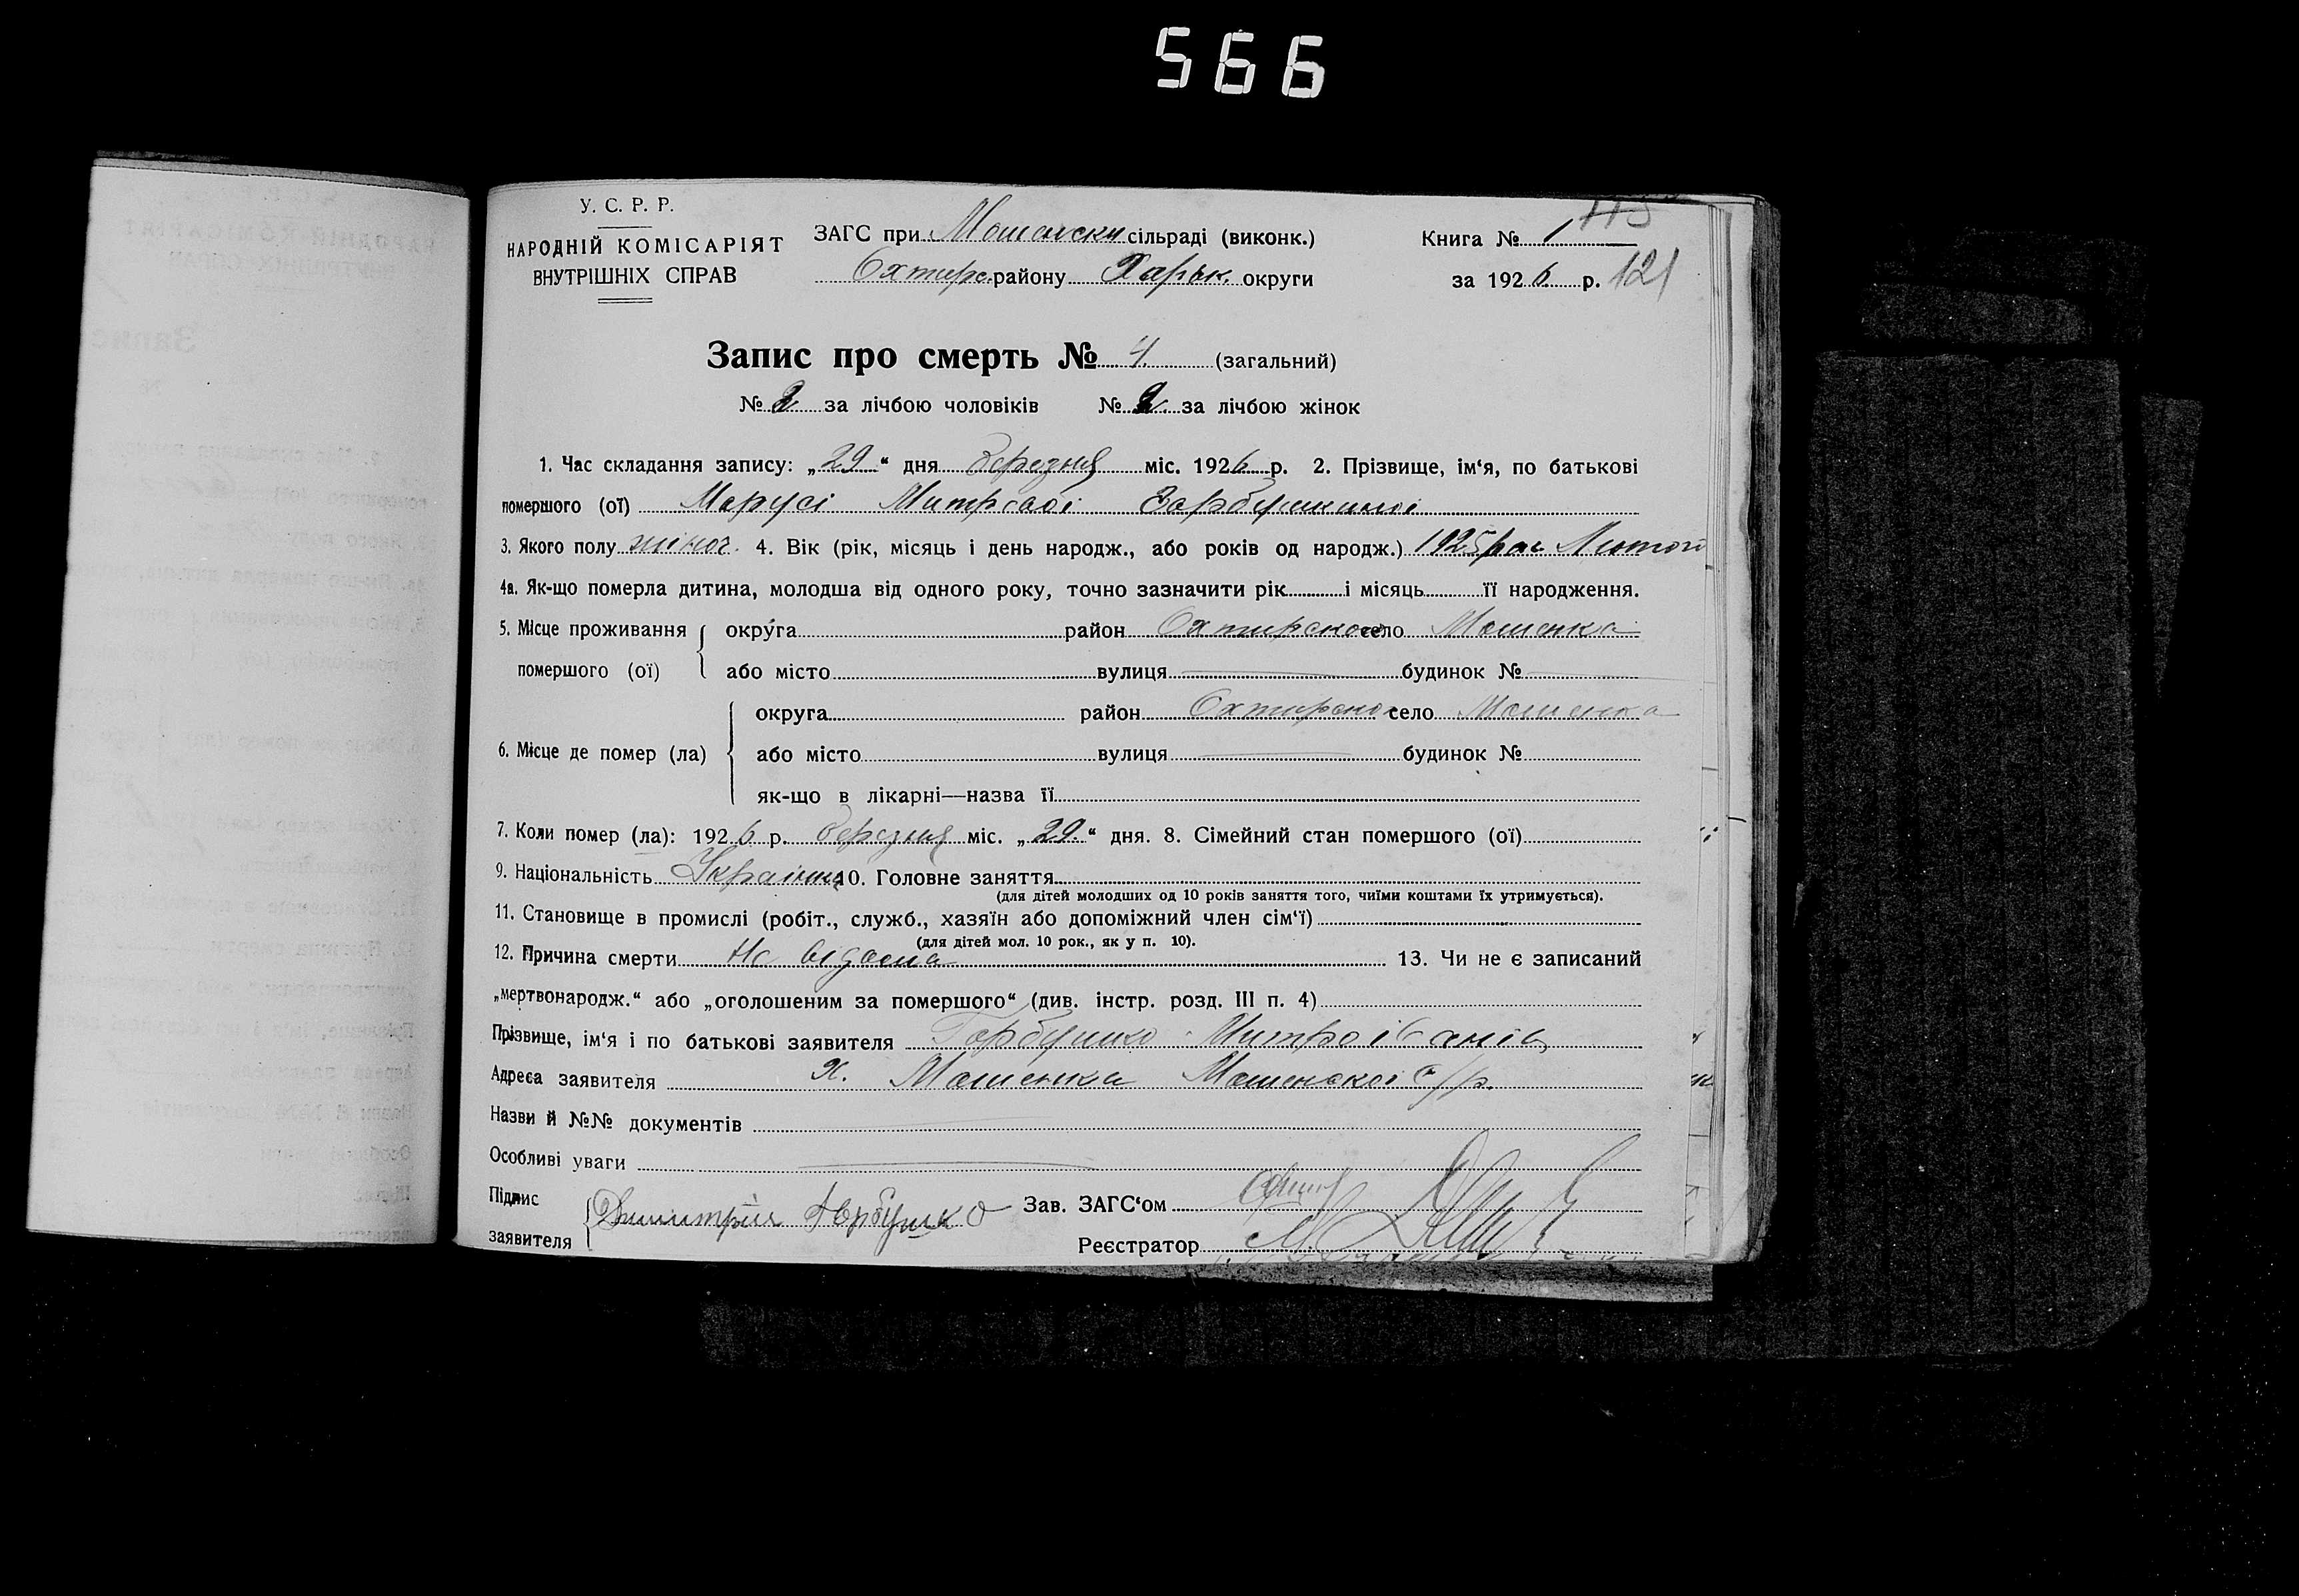 566
У. С. Р. Р.
НАРОДНІЙ КОМІСАРІЯТ
ВНУТРІШНІХ СПРАВ
ЗАГС при сільраді (виконк.)
Охтирс. району Харьк. округи
Книга № 1
115
за 1926 р. 121
Запис про смерть № 4. (загальний)
№ за лічбою чоловіків № 2 за лічбою жінок
1. Час складання запису: „29“ дня березня міс. 1926 р. 2. Прізвище, ім‘я, по батькові
помершого (ої) Марусі
3. Якого полу жіноч. 4. Вік (рік, місяць і день народж., або років од народж.) 1925 Лютого
4а. Як-що померла дитина, молодша від одного року, точно зазначити рік і місяць її народження.
5. Місце проживання помершого (ої) округа район село Мошенка
або місто вулиця будинок №
6. Місце де помер (ла) округа район село Мошенка
або місто вулиця будинок №
як-що в лікарні—назва її
7. Коли помер (ла): 1926 р. березня міс. „29.“ дня. 8. Сімейний стан помершого (ої)
9. Національність 10. Головне заняття
(для дітей молодших од 10 років заняття того, чиїми коштами їх утримується).
11. Становище в промислі (робіт., служб., хазяїн або допоміжний член сім‘ї)
(для дітей мол. 10 рок., як у п. 10).
12. Причина смерти 13. Чи не є записаний
„мертвонародж.“ або „оголошеним за помершого“ (див. інстр. розд. III п. 4)
Прізвище, ім‘я і по батькові заявителя Горбушко Митро
Адреса заявителя Х. Мошенка Мошенської с/р.
Назви й №№ документів
Особливі уваги
Підпис заявителя Горбушко Зав. ЗАГС‘ом
Реєстратор